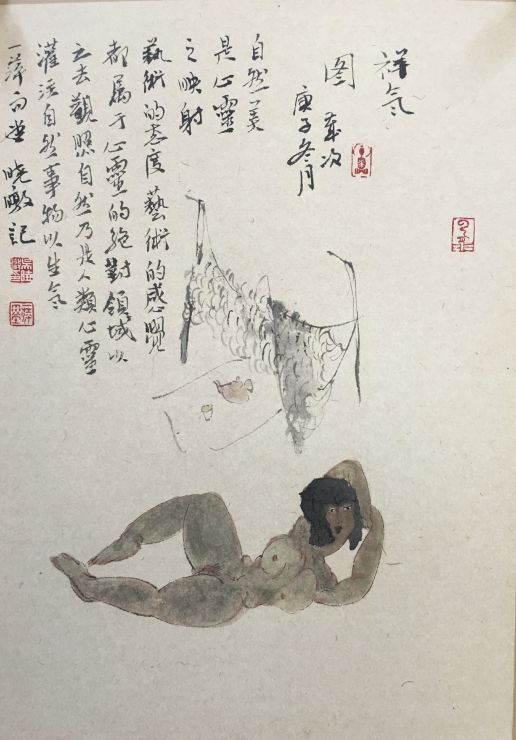 祥氣
图
歲次
庚子冬月
自然美
是心靈
之映射
藝術的态度藝術的感覺
都属于心靈的绝對領域以
之去觀照自然乃是人類心靈
灌活自然事物以生氣
一萍向坐 晓 記